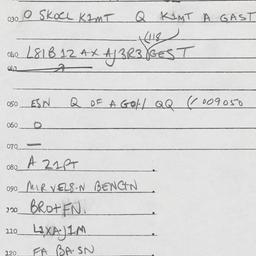 030 O SKOCL K1MT Q K1MT A GAST
(118
040 L81B12 AX AJ3R3 GEST
050 ESN Q OF A GOH/ QQ (1009050
060 O
070 —
080 A Z1PT .
090 MIRVELS-N BENCTN .
BROTFN. .
110 L2XAJ1M .
120 FA BA SN